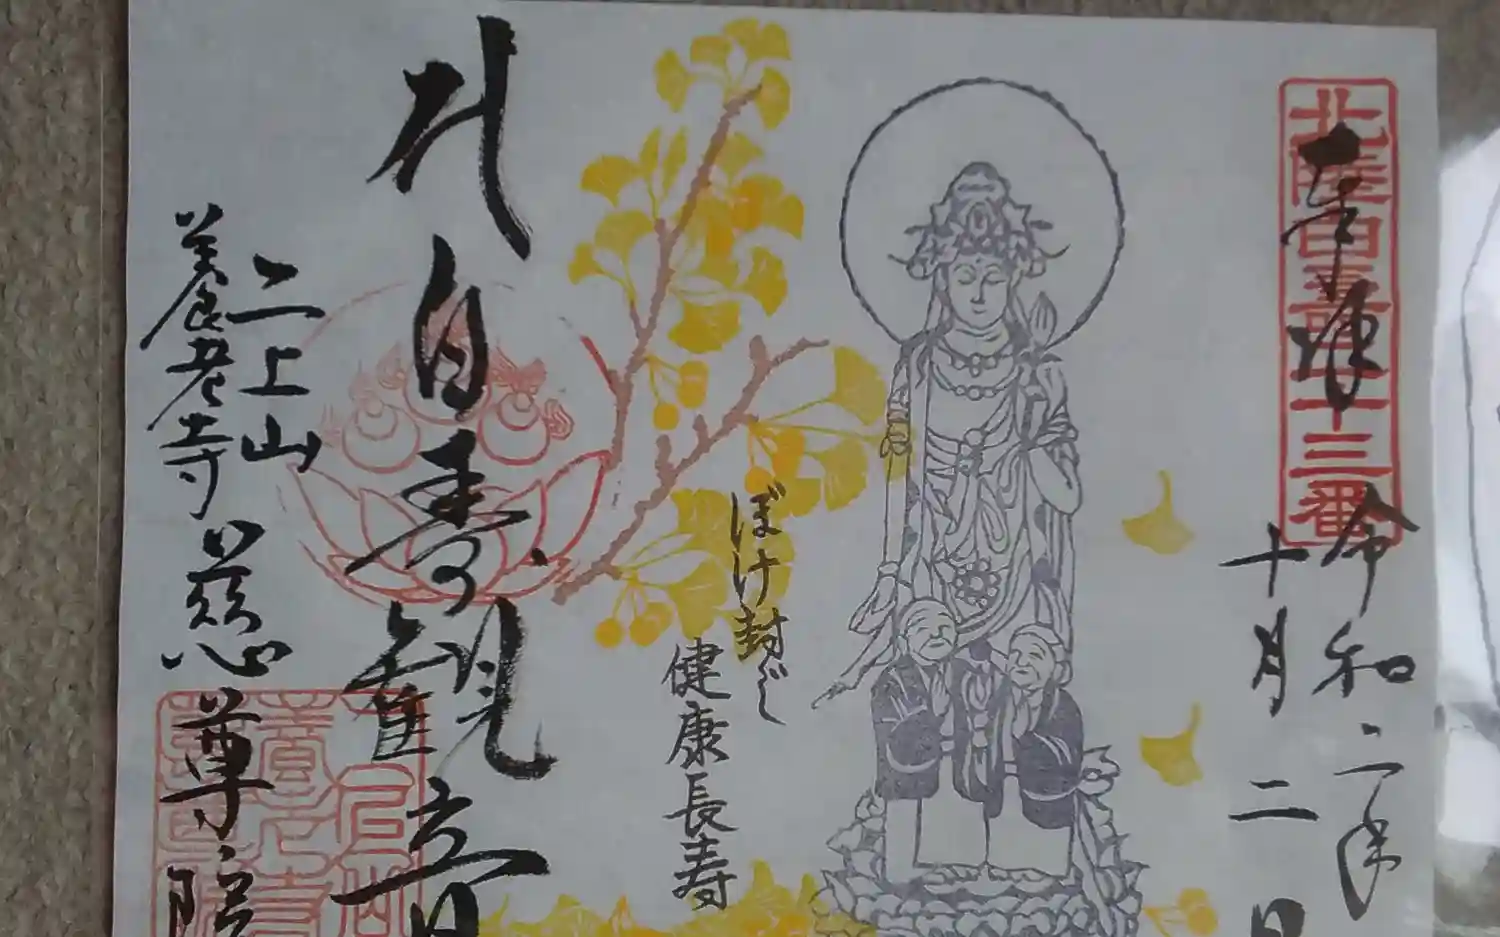 北陸白寿三十三番
奉拝
令和二年
十月二日
ぼけ封じ
健康長寿
札白寿観音
二上山
養老寺 慈尊院